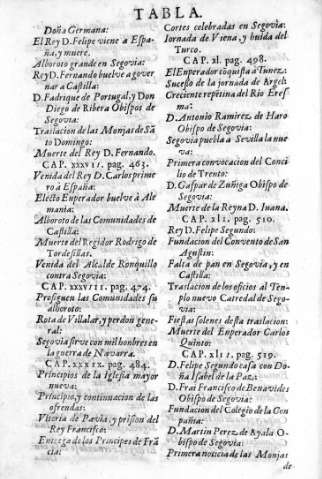 TABLA.
Doña Germana:
El Rey D. Felipe viene a Espa-
ña, y muere.
Alboroto grande en Segovia:
Rey D. Fernando buelve a gover
nar a Castilla:
D. Fadrique de Portugal, y Don
Diego de Ribera Obispos de
Segovia:
Traslacion de las Monjas de Sã
to Domingo:
Muerte del Rey D. Fernando.
CAP. xxxvii. pag. 463.
Venida del Rey D. Carlos prime
ro a España:
Electo Enperador buelve à Ale
mania:
Alboroto de las Comunidades de
Castilla:
Muerte del Regidor Rodrigo de
Tordesillas.
Venida del Alcalde Ronquillo
contra Segovia:
CAP. xxxviii. pag. 474.
Prosiguen las Comunidades su
alboroto:
Rota de Villalar, y perdon gene-
ral:
Segovia sirve con mil honbres en
la guerra de Navarra.
CAP. xxxix. pag. 484.
Principios de la Iglesia mayor
nueva:
Principio, y continuacion de las
ofrendas:
Vitoria de Pavia, y prision del
Rey Francisco:
Entrega de los Principes de Frã
cia:
Cortes celebradas en Segovia:
Jornada de Viena, y huida del
Turco.
CAP. xl. pag. 498.
El Enperador cõquista a Tunez:
Sucesso de la jornada de Argel:
Creciente repetina del Rio Eres-
ma:
D. Antonio Ramirez de Haro
Obispo de Segovia:
Segovia puebla a Sevilla la nue
va:
Primera convocacion del Conci
lio de Trento:
D. Gaspar de Zuñiga Obispo de
Segovia:
Muerte de la Reyna D. Juana.
CAP. xli. pag. 510.
Rey D. Felipe Segundo:
Fundacion del Convento de San
Agustin:
Falta de pan en Segovia, y en
Castilla:
Traslacion de los oficios al Ten-
plo nuevo Catredal de Sego-
via:
Fiestas solenes desta traslacion:
Muerte del Enperador Carlos
Quinto:
CAP. xlii. pag. 519.
D. Felipe Segundo casa con Do-
ña Isabel de la Paz:
D. Frai Francisco de Benavides
Obispo de Segovia:
Fundacion del Colegio de la Con
pañia:
D. Martin Perez de Ayala O-
bispo de Segovia:
Primera noticia de las Monjas
de